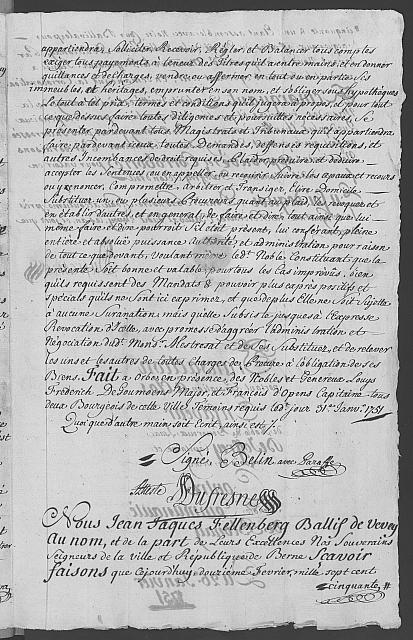 appartiendra, Solliciter, Recevoir, Régler et Balancer tous comptes
exiger tous payements à teneur des Titres qu'il a entre mains, et en donner
quittances et décharges, vendre ou affermer en tout ou en partie Ses
immeubles, et héritages, emprunter en son nom, et s'obliger sous hypothèques
Le tout à tel prix, termes et conditions qu'il jugera à propos, et pour tout
ce que dessus faire toutes diligences et poursuittes nécessaires, Se
présenter par devant tous Magistrats et Tribunaux qu'il appartiendra
faire par devant iceux, toutes Demandes, deffenses réquisitions, et
autres Incombances de droit requises, Plaider, produire, et déduire,
accepter les Sentences ou en appeller ou recourir Suivre les apeaux et recours
ou y renoncer, Compromettre, arbitrer et Transiger, Elire Domicile
Substituer un, ou plusieurs Procureurs quant au plaid, les revoquer et
en établir d'autres, et en general, de faire, et dire, tout ainsi que lui
même faire et dire pourroit S'il étoit présent, lui conférant, pleine
entiere et absolue puissance Authorité, et administration, pour raison
de tout ce que devant, Voulant même led.t Noble Constituant que la
présente Soit bonne et valable, pour tous les Cas imprévûs, bien
qu'ils requissent des Mandats & pouvoir plus exprès positifs et
spécials qu'ils ne Sont ici exprimez, et que de plus Elle ne Soit Sujette
à aucune Surannation mais qu'elle Subsiste jusques à l'Expresse
Revocation d'Icelle, avec promesse d'aggréer l'administration et
Négociation dud.t Mons.r Mestresat et de ses Substituez, et de relever
les uns et les autres de toutes charges de Procure, à l'obligation de ses
Biens. Fait à Orbe, en présence, des Nobles et Genereux Louys
Fréderich De Goumoens Major, et François d'Apens Capitaine, tous
deux Bourgeois de cette Ville Témoins requis led.t jour 31.e Janv.r 1751
Quoi que d'autre main soit Ecrit, ainsi est /.
Signé Belin avec Paraffe
Atteste
Dufresne
Nous Jean Jaques Fellenberg Ballif de Vevey
Au nom, et de la part de Leurs Excellences Nos Souverains
Seigneurs de la ville et République de Berne Scavoir
faisons que cejourdhuy douzième Fevrier, mille sept cent
cinquante